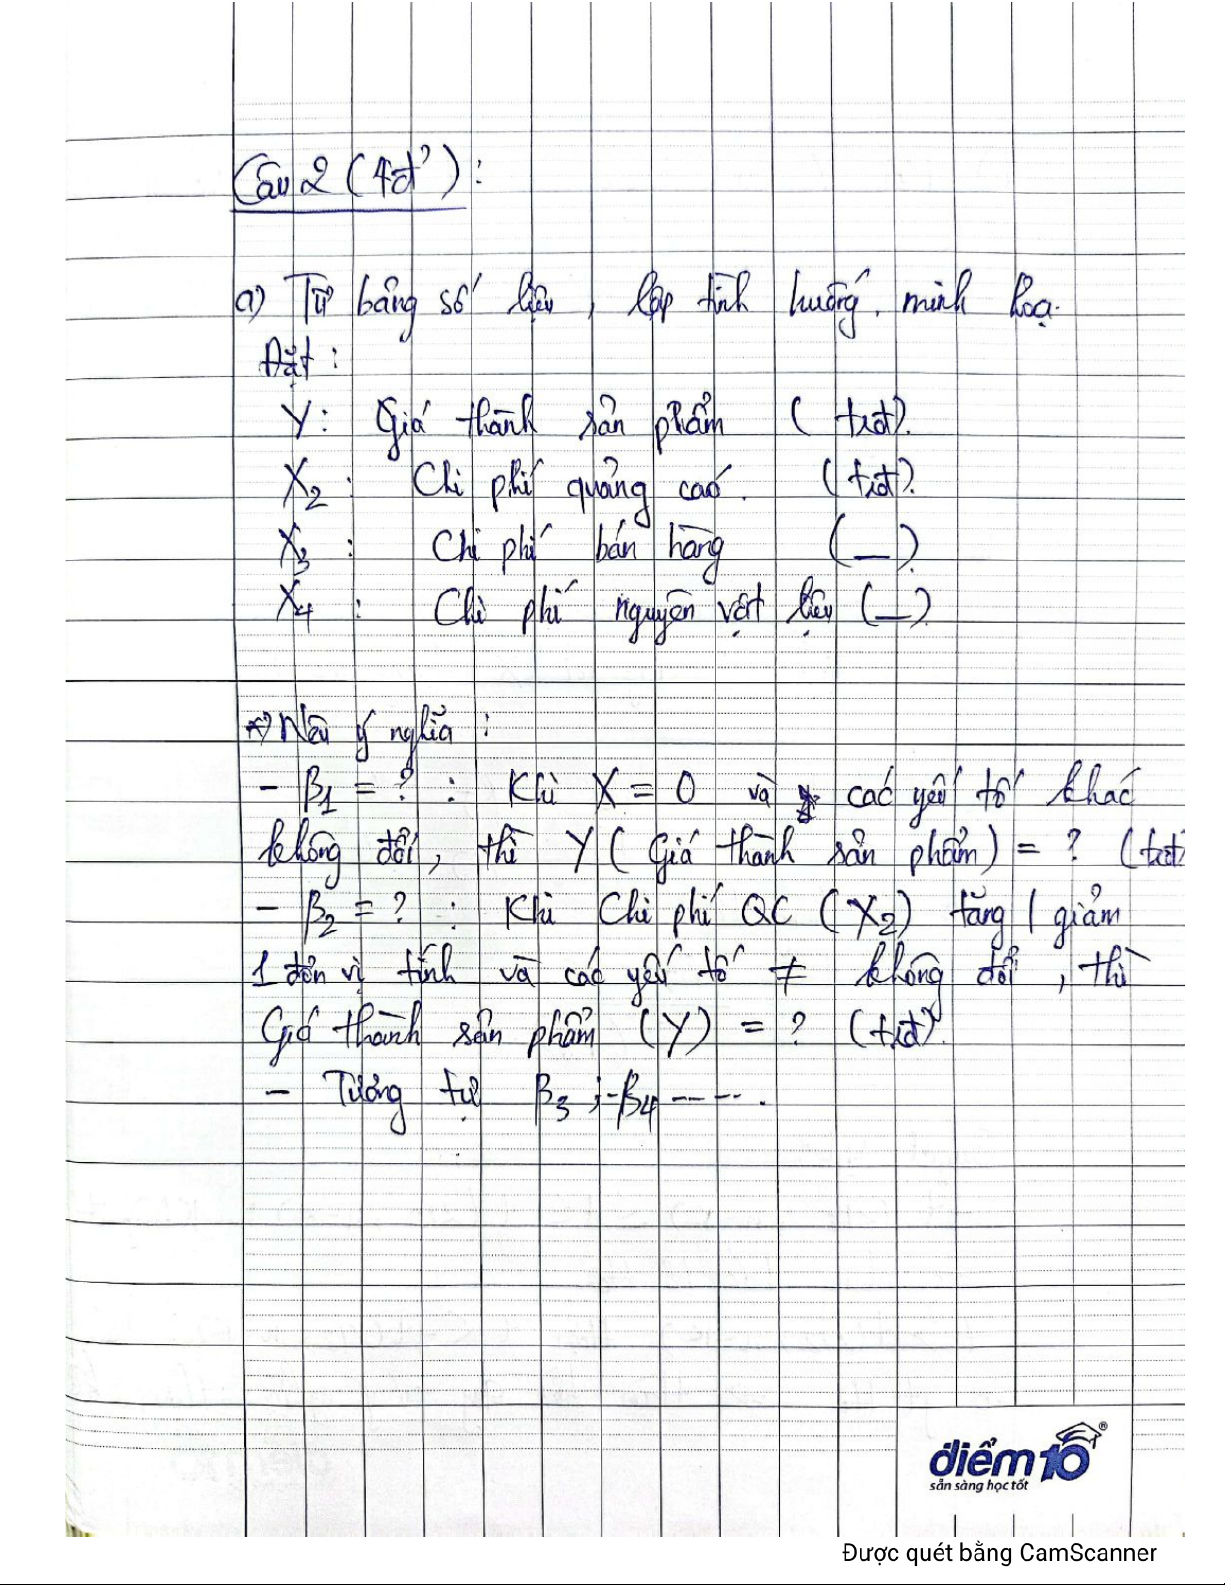 Câu 2 (4đ'):
a) Từ bảng số liệu, lập tình huống, minh hoạ.
Đặt:
Y: Giá thành sản phẩm (trđ).
X2: Chi phí quảng cáo. (trđ).
X3: Chi phí bán hàng (_)
X4: Chi phí nguyên vật liệu (_)
*) Nêu ý nghĩa:
- β1 = ? : Khi X = 0 và các yếu tố khác
không đổi, thì Y (Giá thành sản phẩm) = ? (trđ)
- β2 = ? : Khi Chi phí QC (X2) tăng / giảm
1 đơn vị tính và các yếu tố ≠ không đổi, thì
Giá thành sản phẩm (Y) = ? (trđ).
- Tương tự β3; β4 -----.
điểm10®
sẵn sàng học tốt
Được quét bằng CamScanner